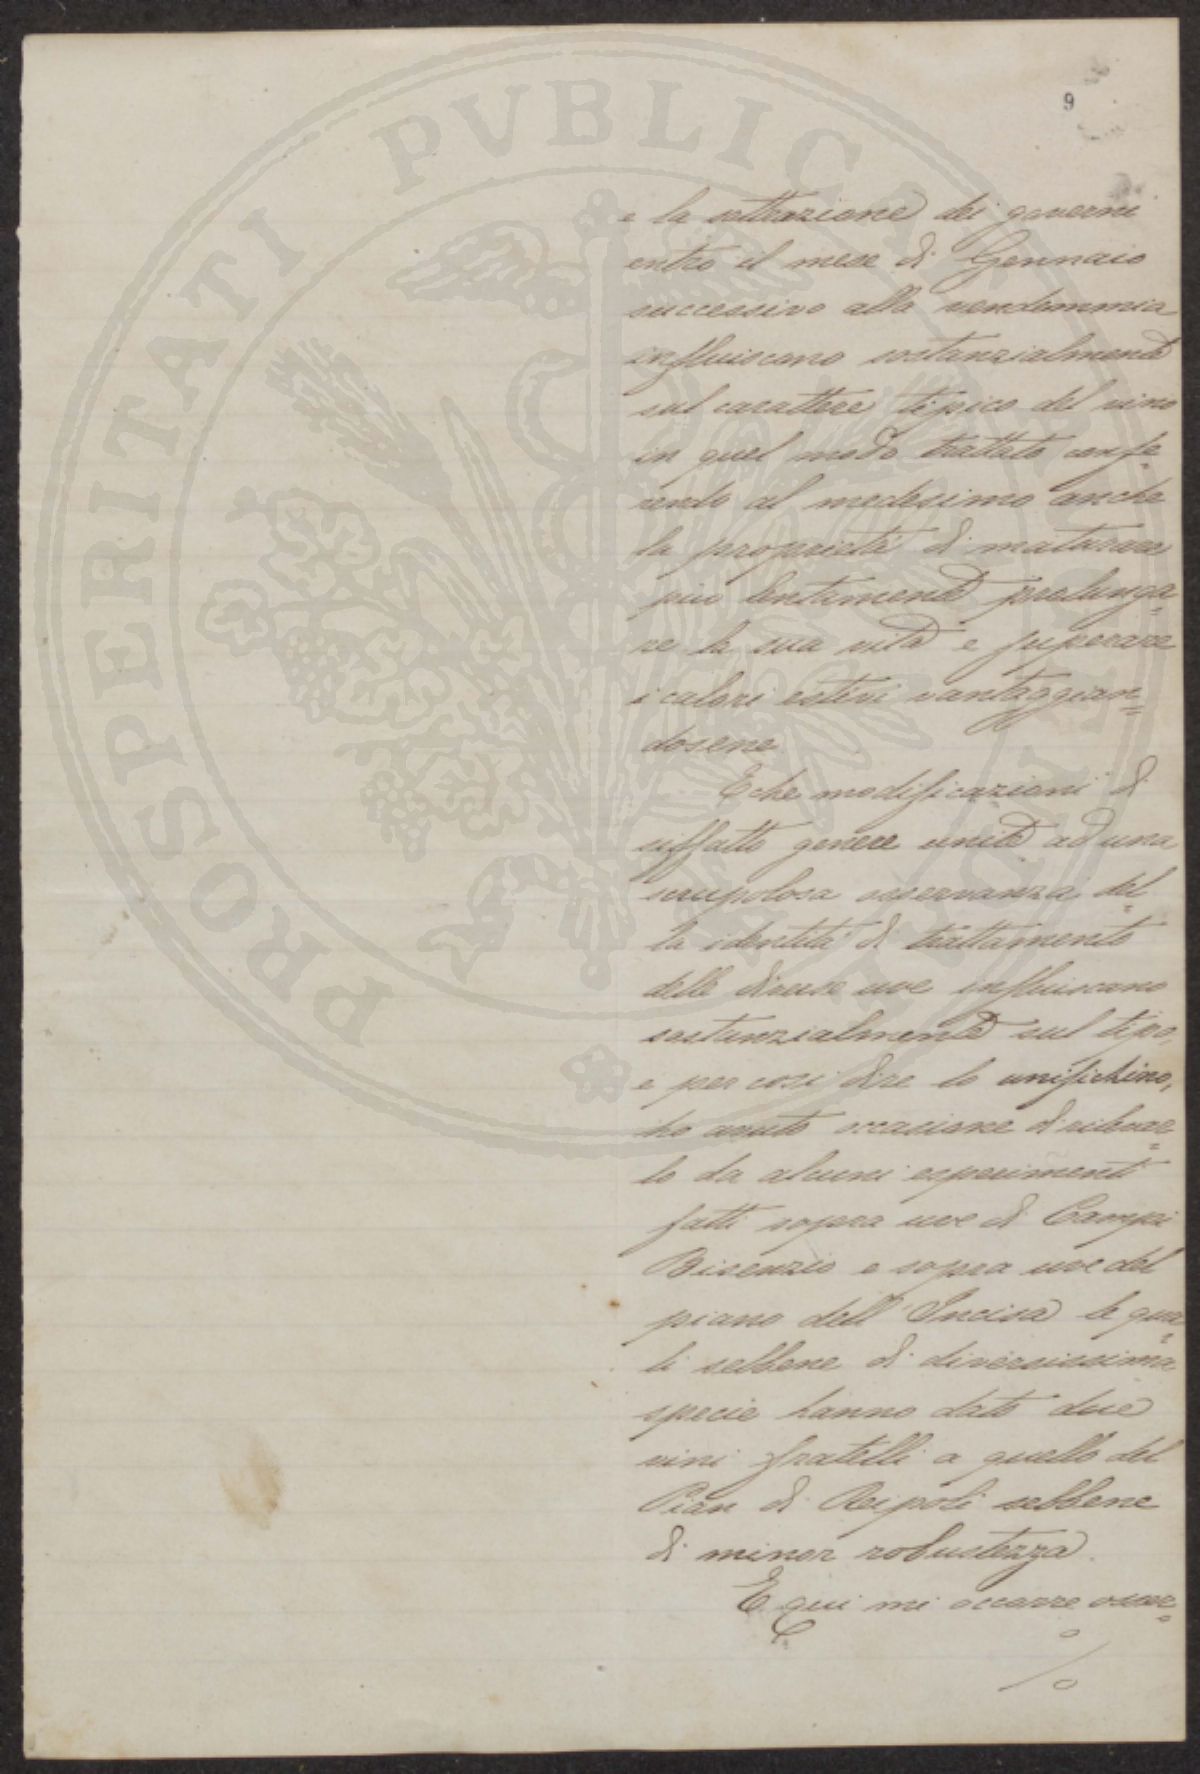 9
PROSPERITATI PVBLICAE
e la sottrazione dei governi
entro il mese di Gennaio
successivo alla vendemmia
influiscano sostanzialmente
sul carattere tipico del vino
in quel modo trattato confe=
rendo al medesimo anche
la proprietà di maturare
più lentamente prolunga=
re la sua vita e superare
i calori estivi vantaggian=
dosene
E che modificazioni di
siffatto genere unite ad una
scrupolosa osservanza del=
la identità di trattamento
delle diverse uve influiscano
sostanzialmente sul tipo,
e per così dire lo unifichino,
ho avuto occasione di rilevar=
lo da alcuni esperimenti
fatti sopra uve di Campi
Bisenzio e sopra uve del
piano dell'Incisa le qua=
li sebbene di diversissima
specie hanno dato due
vini fratelli a quello del
Pian di Ripoli sebbene
di minor robustezza.
E qui mi occorre osser=